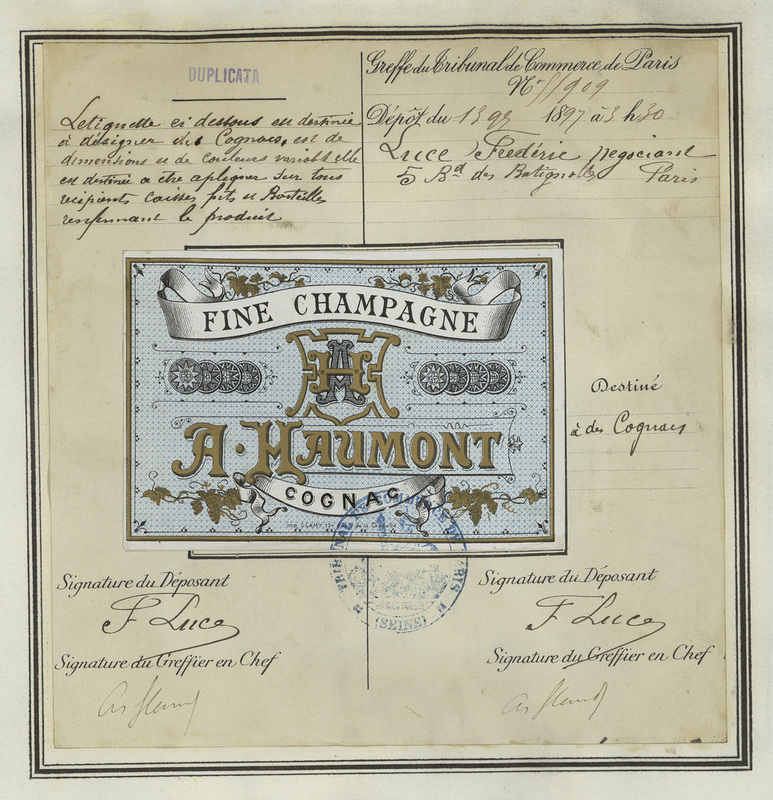 DUPLICATA
Letiquette ci dessous est destinée
à désigner des Cognacs, est de
dimensions et de couleurs variabl elle
est destinée a etre apliquer sur tous
recipients caisses futs et Bouteilles
renfermant le produit
Greffe du Tribunal de Commerce de Paris
Nº 51909
Dépôt du 13 1897 à 3 h 30
Luce Frédéric negociant
5 Bd des Batignolles Paris
FINE CHAMPAGNE
AH
A. HAUMONT
COGNAC
Destiné
à des Cognacs
TRIBUNAL DE COMMERCE DE PARIS
(SEINE)
Signature du Déposant
F Luce
Signature du Greffier en Chef
Signature du Déposant
F Luce
Signature du Greffier en Chef